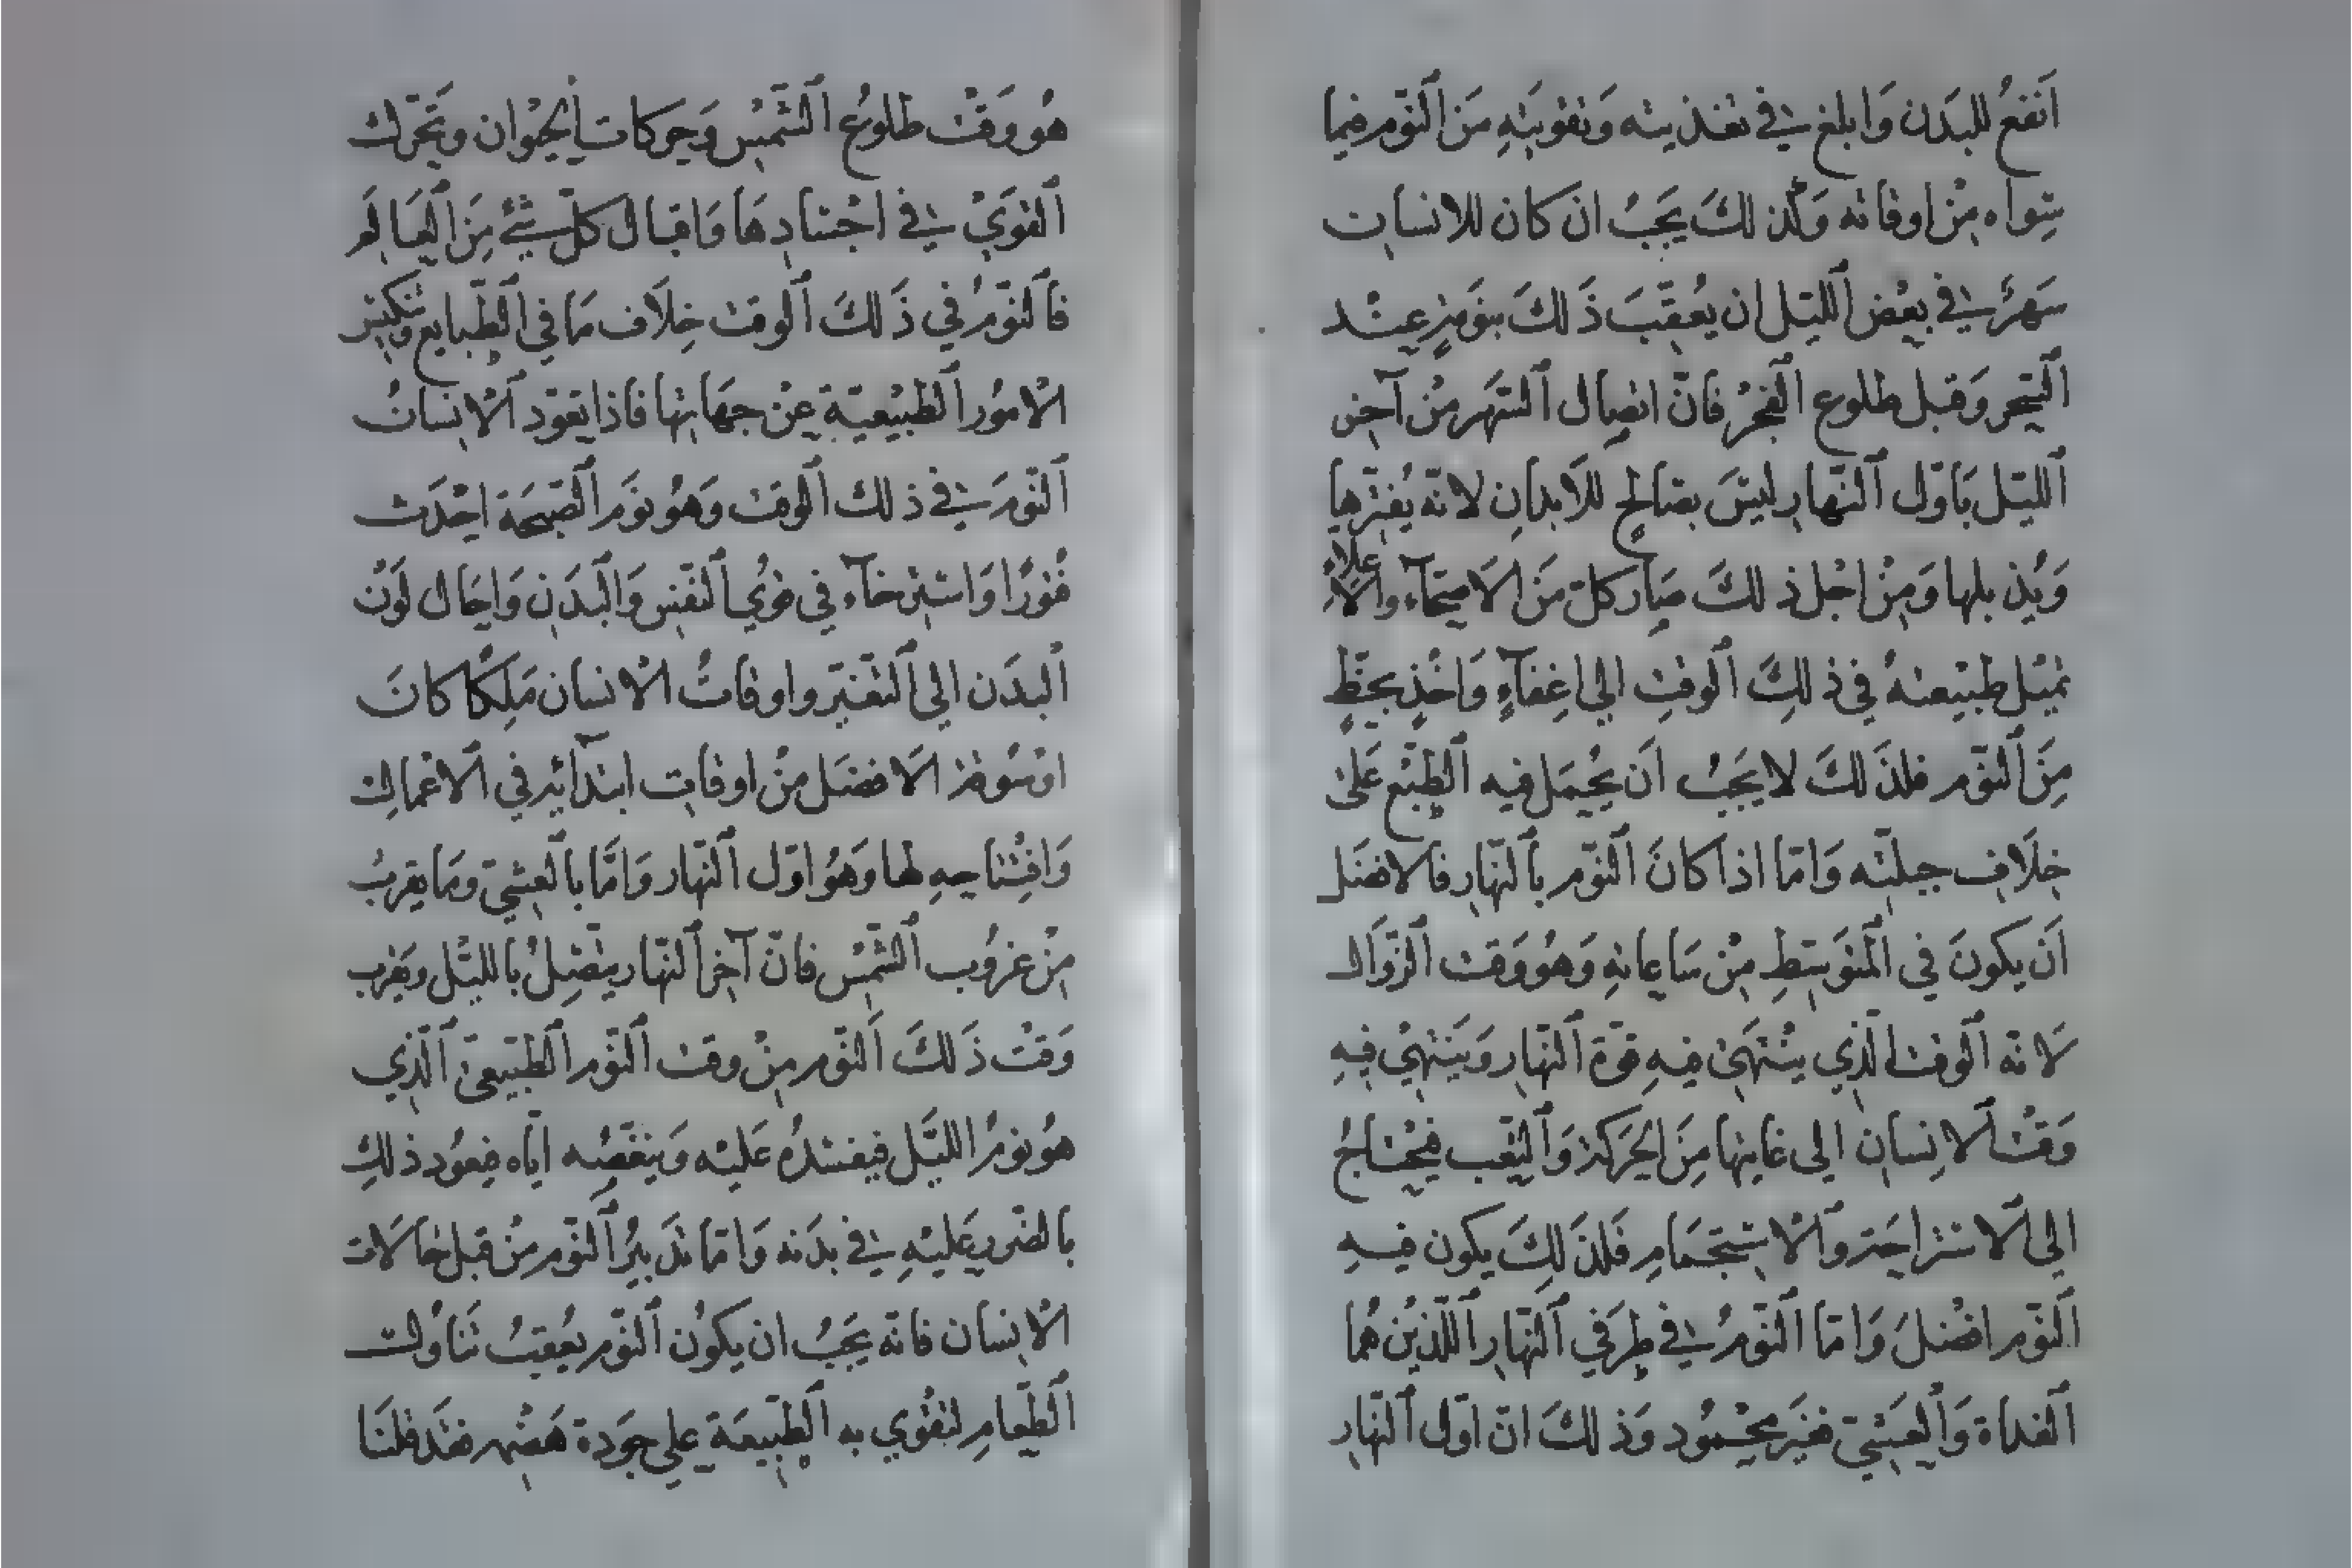 اَنفعُ للبَدَن وَابلغ في تغذيته وَتقويَتِهِ مَن اَلنّوْم فيما
سِواه مِنْ اوقاته وَكذلكَ يَجبُ ان كان للانسان
سَهَرٌ في بعْض اَلليْل ان يُعقّبَ ذَلكَ بنَومٍ عِنْد
اَلسَّحر وَقبل طلوع اَلفجْر فانّ اتصال اَلسَّهَر مِنْ آخر
اَلليْل باَوّل اَلنّهار ليسَ بصَالحٍ للاَبدانِ لانّه يُفتّرها
وَيُذبلها وَمِنْ اجْل ذلكَ صَار كلّ مَن الاَصحّآء والاَعلاّءِ
تميْل طبيْعتهُ في ذلكَ اَلوقتِ الي اغِفآءٍ وَاخْذٍ بحَظٍّ
مِنَ اَلنوْم فلذَلكَ لا يَجبُ اَن يُحْمَل فيه اَلطبْع عَلىَ
خِلَافِ جبلتّه وَامّا اذا كانَ اَلنوّم باَلنّهارِ فالافضَل
اَن يكونَ في اَلمتوَسّطِ مِنْ سَاعاتِهِ وَهُو وَقت اَلزّوَال
لاَنّه اَلوقت اَلذي يَنْتَهيْ فيهِ قوّة اَلنّهارِ وَيَنتهيْ فيهِ
وَقتُ اَلانسانِ الى غايتها مِنَ اَلحَركة وَاَلتّعب فيحْتاجُ
الي اَلاستراحَة واَلاسْتجْمَامِ فَلذَلكَ يكون فيهِ
اَلنّوم افضْلَ وَامّا اَلنّومُ في طرَفي اَلنّهارِ اَللّذيْن هُما
اَلغداة وَاَلعَشيّ فغيَر محْمُود وَذلكَ انّ اوّل اَلنّهارِ
هُو وَقتْ طلوُع اَلشّمسْ وَحركات اَلحيْوان وتحَرّك
اَلقوَيْ في اجْسادِهَا وَاقبال كلّ شيْءٍ مِنَ اَلعَالَم
فاَلنوّمُ في ذَلكَ اَلوقت خِلاَف مَا في اَلطّبايع وَتنكيْس
الاموُر اَلطبيْعيّة عِنْ جهَاتها فاذا تعوّد اَلانسانُ
اَلنّومَ في ذلك اَلوقت وَهُو نَوم اَلصّبحَة احْدَث
فُتورًا وَاسْترخآء في قوُي اَلنّفس وَاَلبَدَن وَاحَال لَوْن
اَلبدَن الي اَلتّغيّر واوقاتُ الانسان مَلكًا كانَ
اوْ سُوقة الاَفضَل مِنْ اوقات ابتدآئِهِ في الاعْمال
وَافْتتاحهِ لها وَهُو اوّل اَلنّهار وَامّا باَلعشيّ وَما يقربُ
مِنْ غرُوب اَلشّمسْ فانّ آخر اَلنّهار يتصّلُ باَلليْل ويقرب
وَقتْ ذَلكَ اَلنّوم مِنْ وقت اَلنّوم اَلطّبيْعيّ اَلذي
هُو نومُ الليَّل فيفسْدُه عَليْه وَينغّصُه ايّاه فيعوُد ذلك
بالضّرر عَليْهِ في بدَنه وَامّا تدَبيْر اَلنّوم مِنْ قبل حَالات
الانسان فانّه يجَبُ ان يكوُن اَلنّوم يعُقبُ تَناوُل
اَلطّعامِ لتقوْي به اَلطّبيعَة علي جوَدة هَضْمه فقَد قلنَا